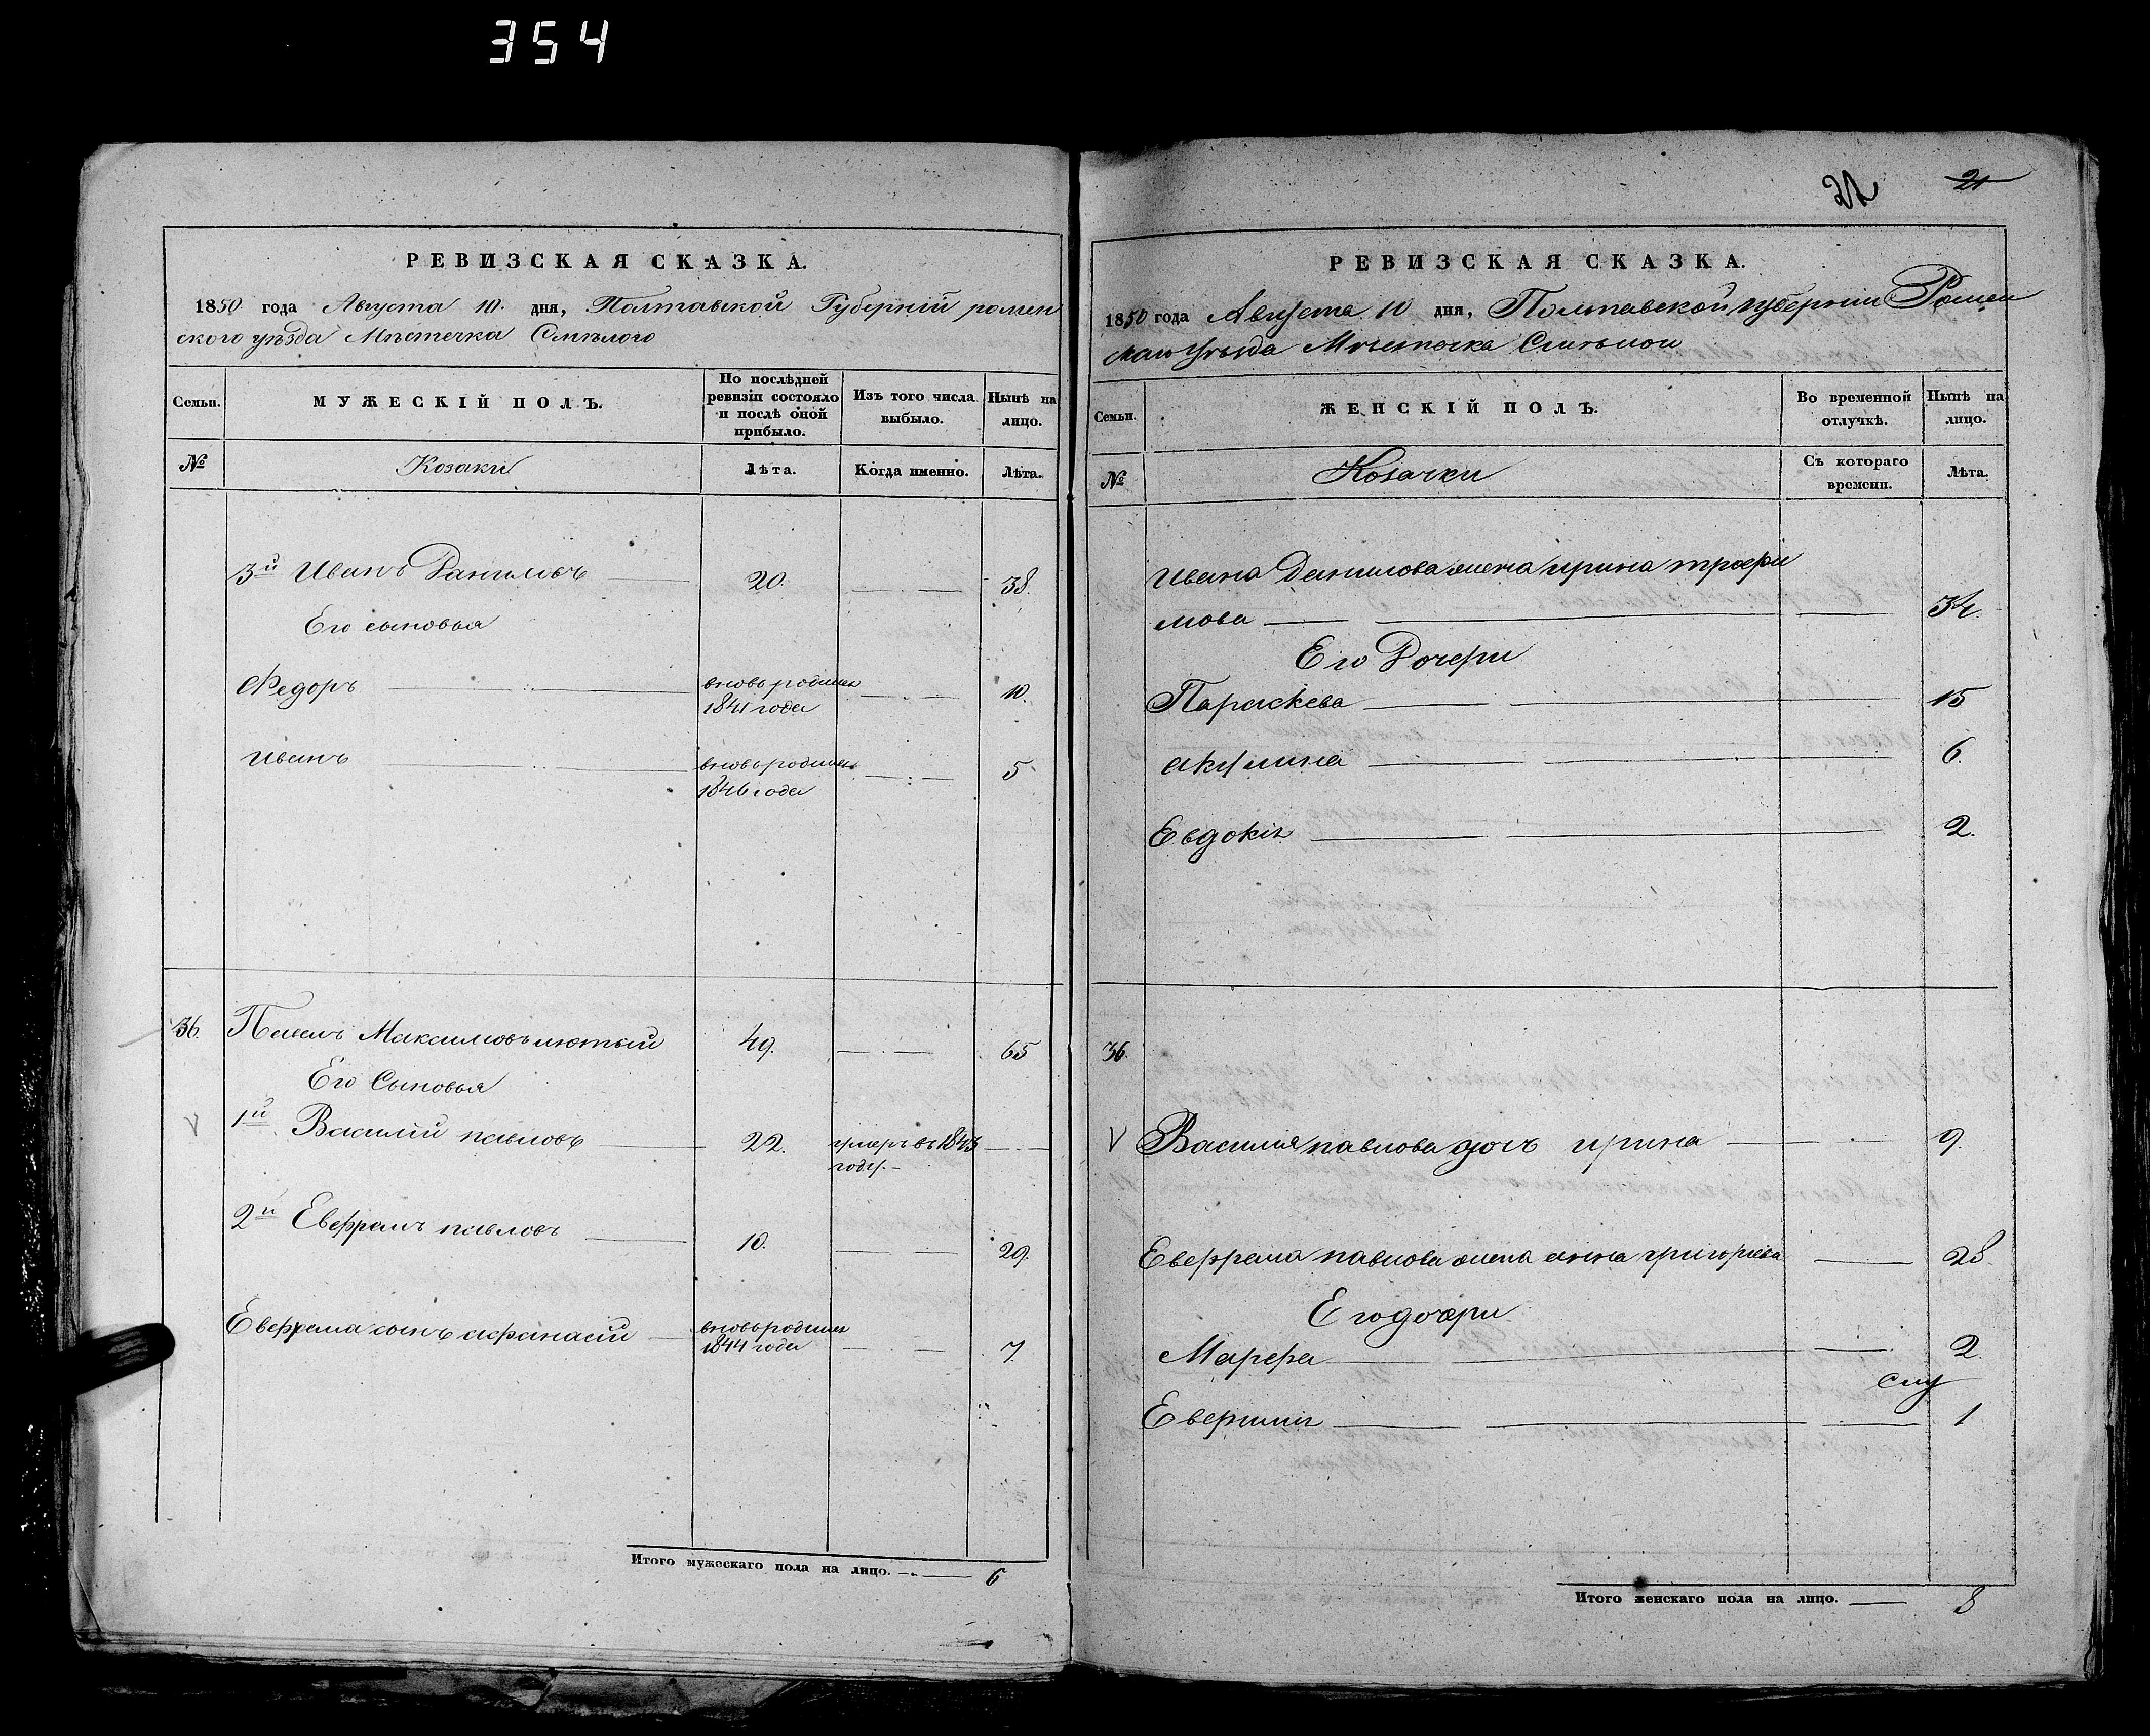 354
РЕВИЗСКАЯ СКАЗКА.
1850 года Августа 10. дня, Полтавской Губерніи ромен
ского уѣзда Мѣстечка Смѣлого
Семьи.
МУЖЕСКІЙ ПОЛЪ.
По послѣдней ревизіи состояло и послѣ оной прибыло.
Изъ того числа выбыло.
Нынѣ на лицо.
№
Козаки
Лѣта.
Когда именно.
Лѣта.
3й Иванъ Даниловъ 20. 38.
Его сыновья
Федоръ вновь рожден 10.
1841 года
Иванъ вновь рожден 5
1846 года
36. Павелъ Максимовъ лютый 49. 65
Его Сыновья
V 1й Василій павловъ 22. умеръ въ 1843
году.
2й Евфремъ павловъ 10. 29.
Евфрема сынъ афанасій вновь рожден 7.
1844 года
Итого мужескаго пола на лицо. 6
22 21
РЕВИЗСКАЯ СКАЗКА.
1850 года Августа 10 дня, Полтавской губерніи Ромен
скаго Уѣзда Мѣстечка Смѣлои
Семьи.
ЖЕНСКІЙ ПОЛЪ.
Во временной отлучкѣ.
Нынѣ на лицо.
№
Козачки
Съ котораго времени.
Лѣта.
Ивана Данилова жена ирина трофи
мова 34.
Его Дочери
Параскева 15
акулина 6.
Евдокія 2.
36.
V Василия павлова доч ирина 9.
Евфрема павлова жена анна григорієва 28.
Его дочери
Марфа 2.
Евфимія 1
Итого женскаго пола на лицо. 8